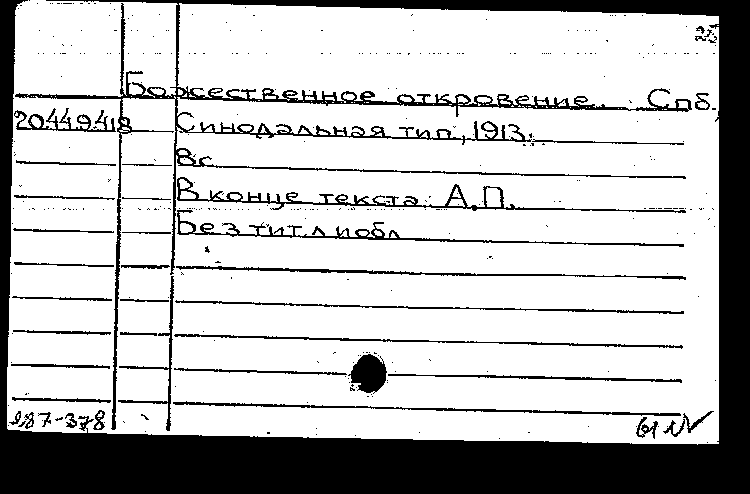 Божественное откровение. Спб.,
20449418 Синодальная тип., 1913.
8с
В конце текста: А.П.
Без тит.л и обл
987-378